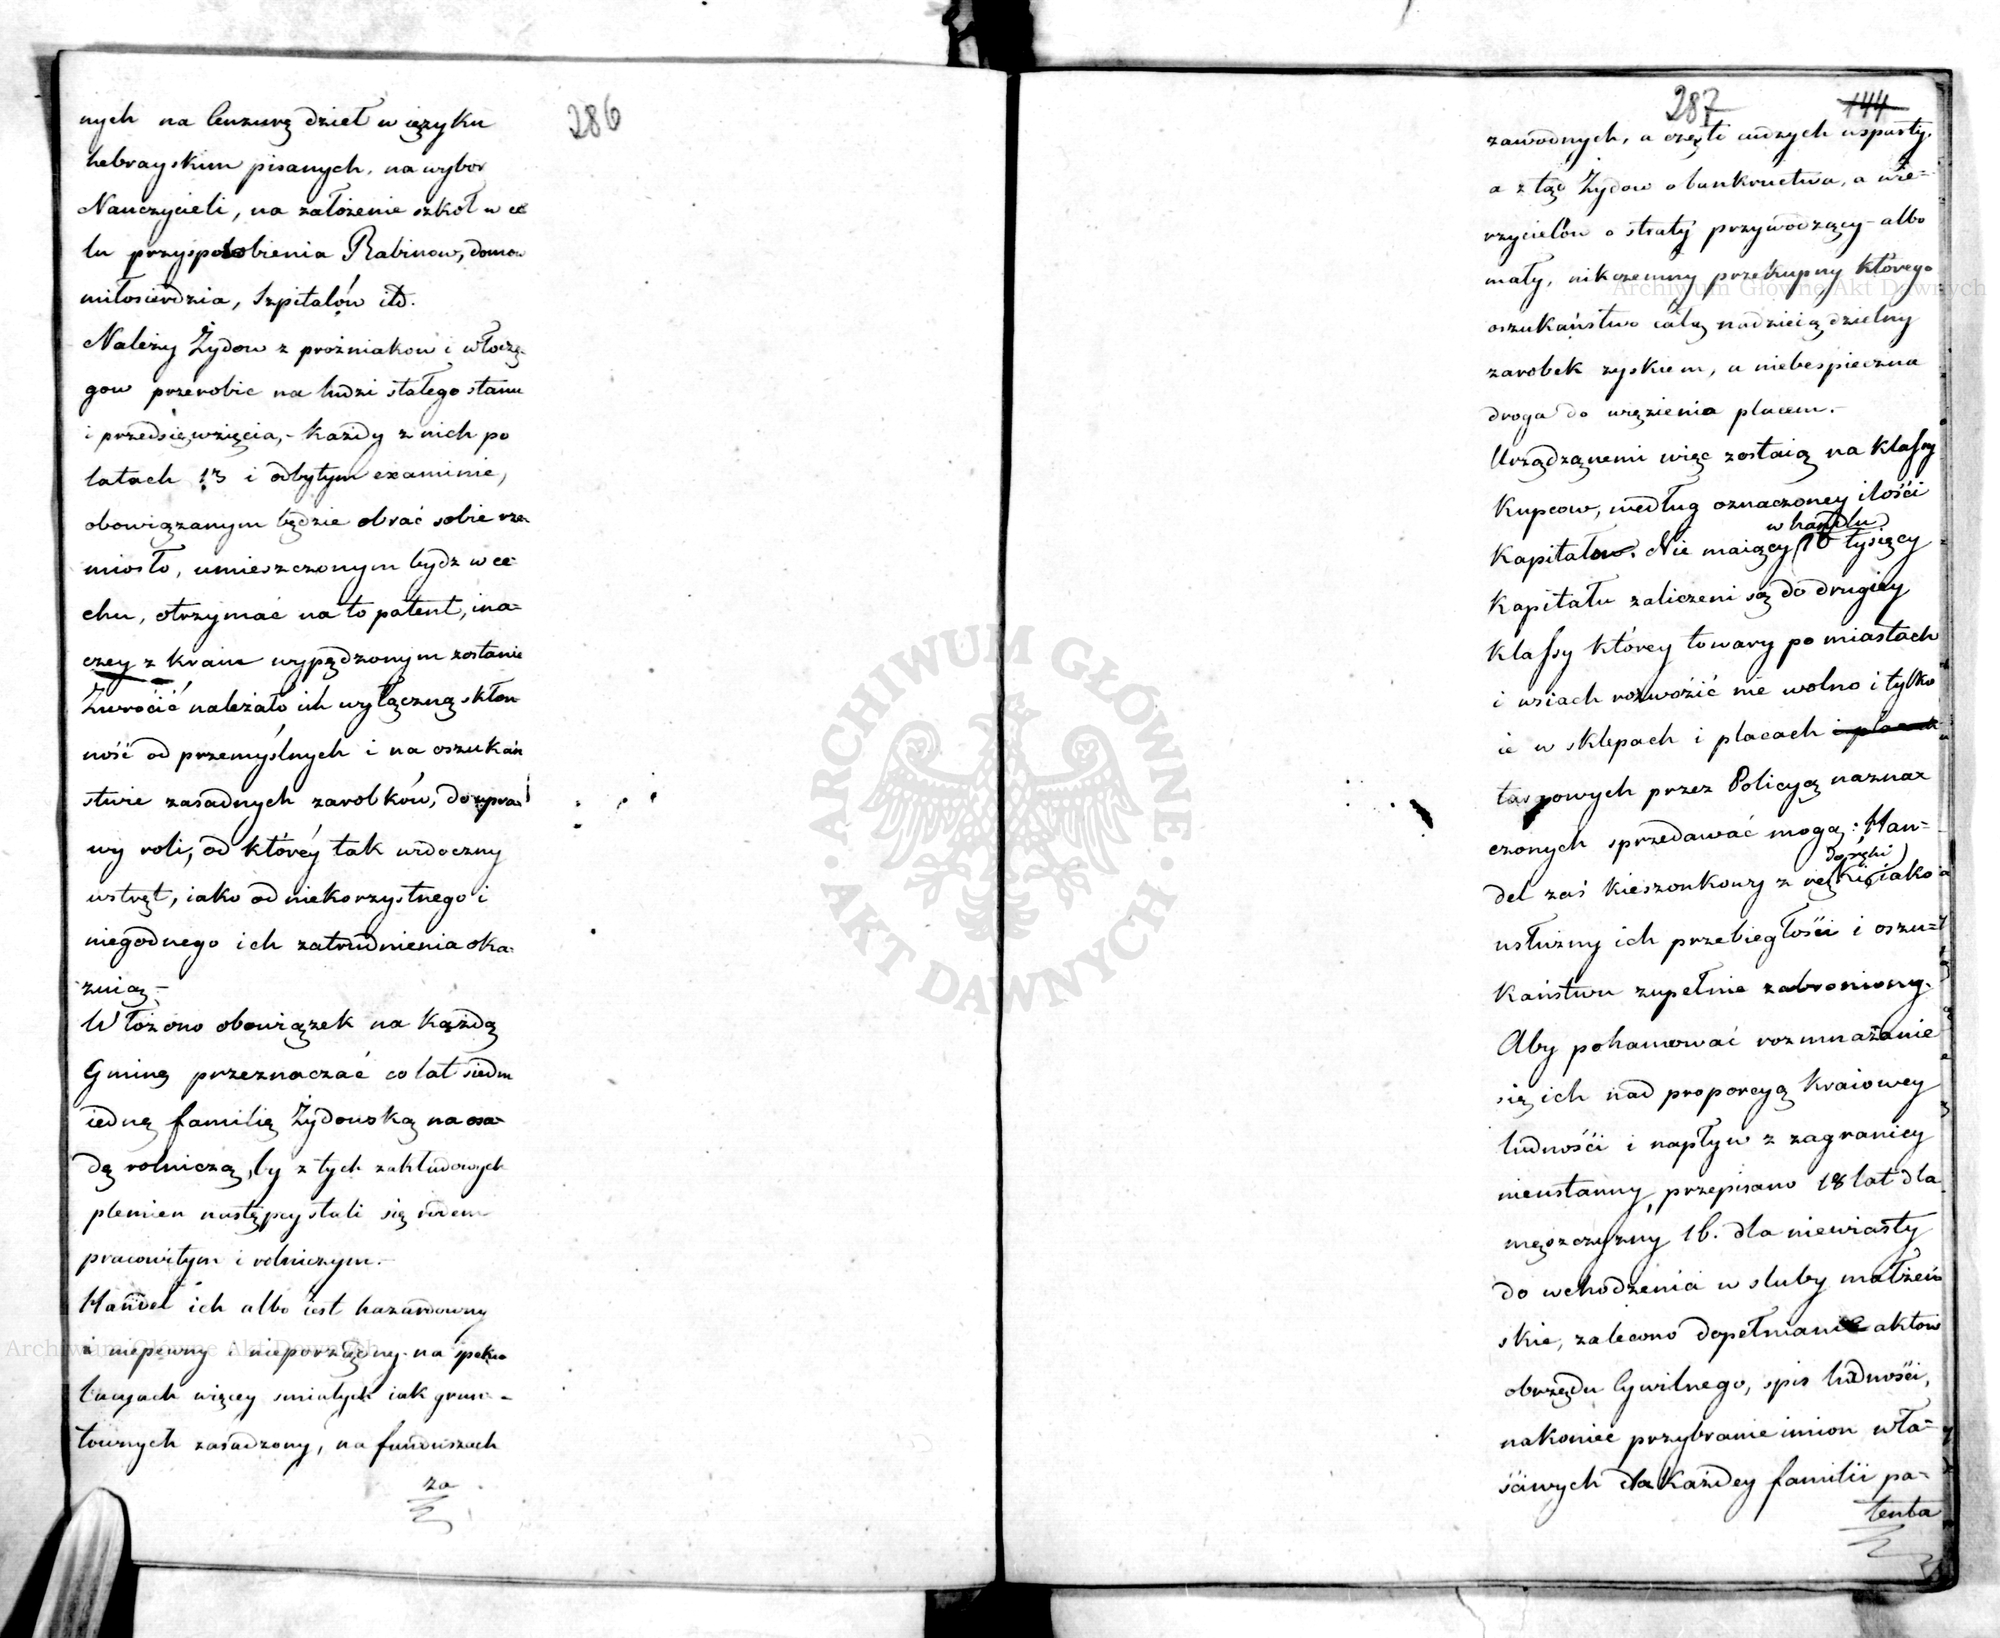 286
nych na Cenzurę dzieł w ięzyku
hebrayskim pisanych, na wybor
Nauczycieli, na założenie szkoł w ce
lu przysposobienia Rabinow, domow
miłosierdzia, Szpitalów itd.
Należy Żydow z prożniakow i włoczę-
gow przerobic na ludzi stałego stanu
i przedsięwzięcia,- każdy z nich po
latach 13 i odbytym examinie,
obowiązanym będzie obrać sobie rze
miosło, umieszczonym bydz w ce-
chu, otrzymać na to patent, ina-
czey z kraiu wypędzonym zostanie
Zwrócić należało ich wyłączną skłon
ność od przemyślnych i na oszukań
stwie zasadnych zarobków, do upra-
wy roli, od którey tak widoczny
wstręt, iako od niekorzystnego i
niegodnego ich zatrudnienia oka-
zuią.-
Włożono obowiązek na każdą
Gminę przeznaczać co lat siedm
iednę familię Żydowską na osa-
dę rolniczą, by z tych zakładowych
plemien następcy stali się rodem
pracowitym i rolniczym.-
Handel ich albo iest hazardowny
i niepewny i nieporządny na speku
lacyach więcey smiałych iak grun-
townych zasadzony, na funduszach
za
287
144
zawodnych, a częsti cudzych wsparty,
a ztąd Żydow o bankructwa, a wie-
rzycielów o straty przywodzący - albo
mały, nikczemny przekupny którego
oszukaństwo całą nadzieią dzielny
zarobek zyskiem, a niebespieczna
droga do więzienia placem.-
Urządzanemi więc zostaią na klassy
Kupcow, według oznaczoney ilości
w handlu
Kapitałow. Nie maiący 10 tysięcy
Kapitału zaliczeni są do drugiey
klassy którey towary po miastach
i wsiach rozwozić nie wolno i tylko
ie w sklepach i placach i placach
targowych przez Policyą nazna-
czonych sprzedawać mogą: Han-
do ręki
del zaś kieszonkowy z ręki iako
usłużny ich przebiegłości i oszu-
kaństwu zupełnie zabroniony.
Aby pohamować rozmnażanie
się ich nad proporcyą kraiowey
ludności i napływ z zagranicy
nieustanny, przepisano 18 lat dla
męszczyzny 16. dla niewiasty
do wchodzenia w sluby małżeń
skie, zalecono dopełnianie aktow
obrzędu Cywilnego, spis ludności,
nakoniec przybranie imion wła-
ściwych dla każdey familii pa-
tenta
ARCHIWUM GŁÓWNE AKT DAWNYCH
Archiwum Główne Akt Dawnych
Archiwum Główne Akt Dawnych